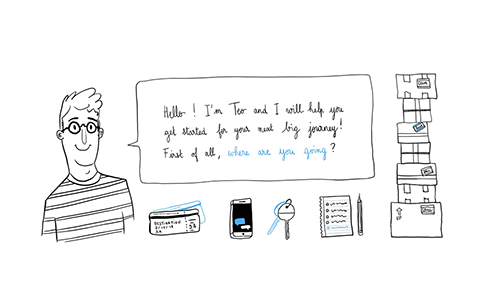 Hello ! I'm Teo and I will help you
get started for your next big journey!
First of all, where are you going ?
DESTINATION